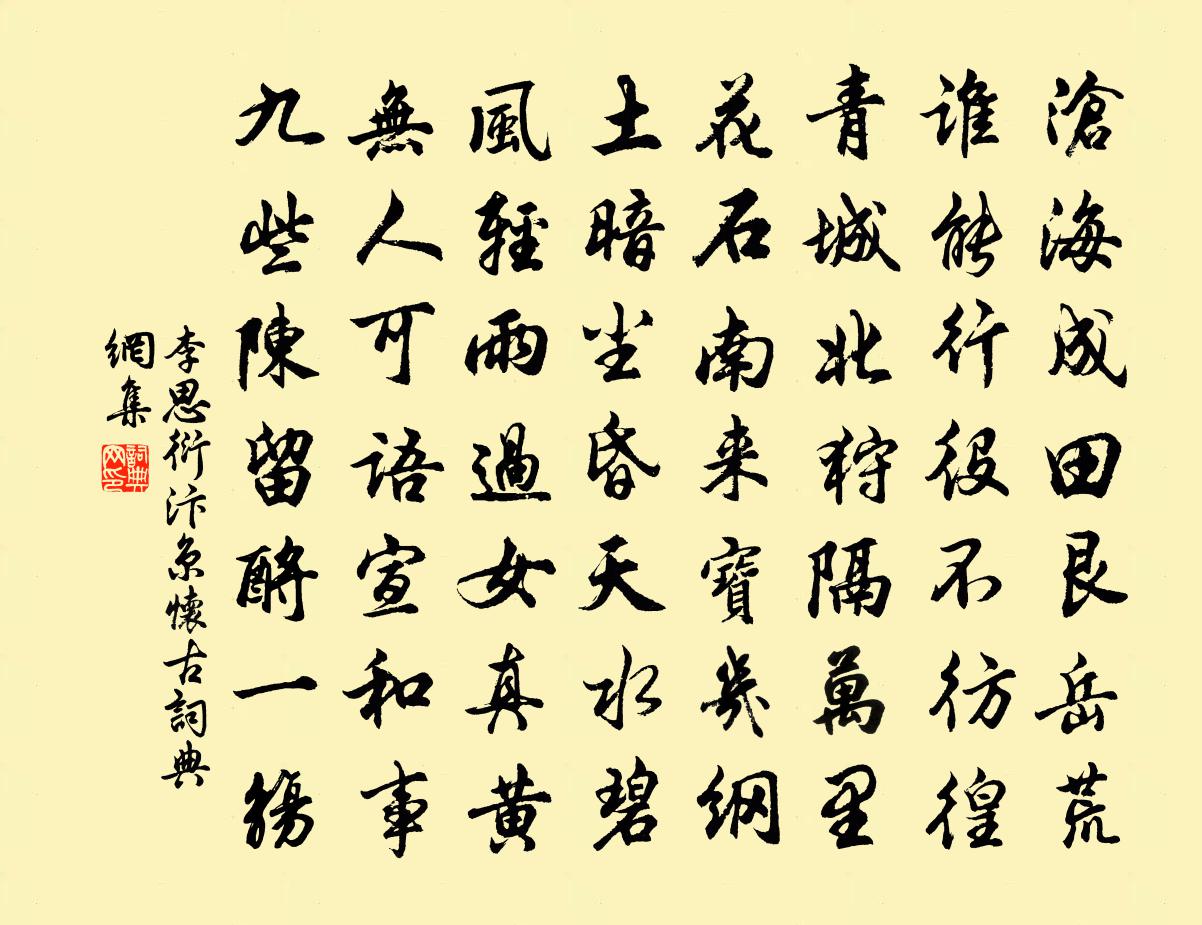 滄海成田艮岳荒
誰能行役不彷徨
青城北狩隔萬里
花石南来寶幾綱
土暗尘昏天水碧
風輕雨過女真黄
無人可語宣和事
九些陳留酹一觴
李思衍汴京懷古詞典
網集
詞典網印